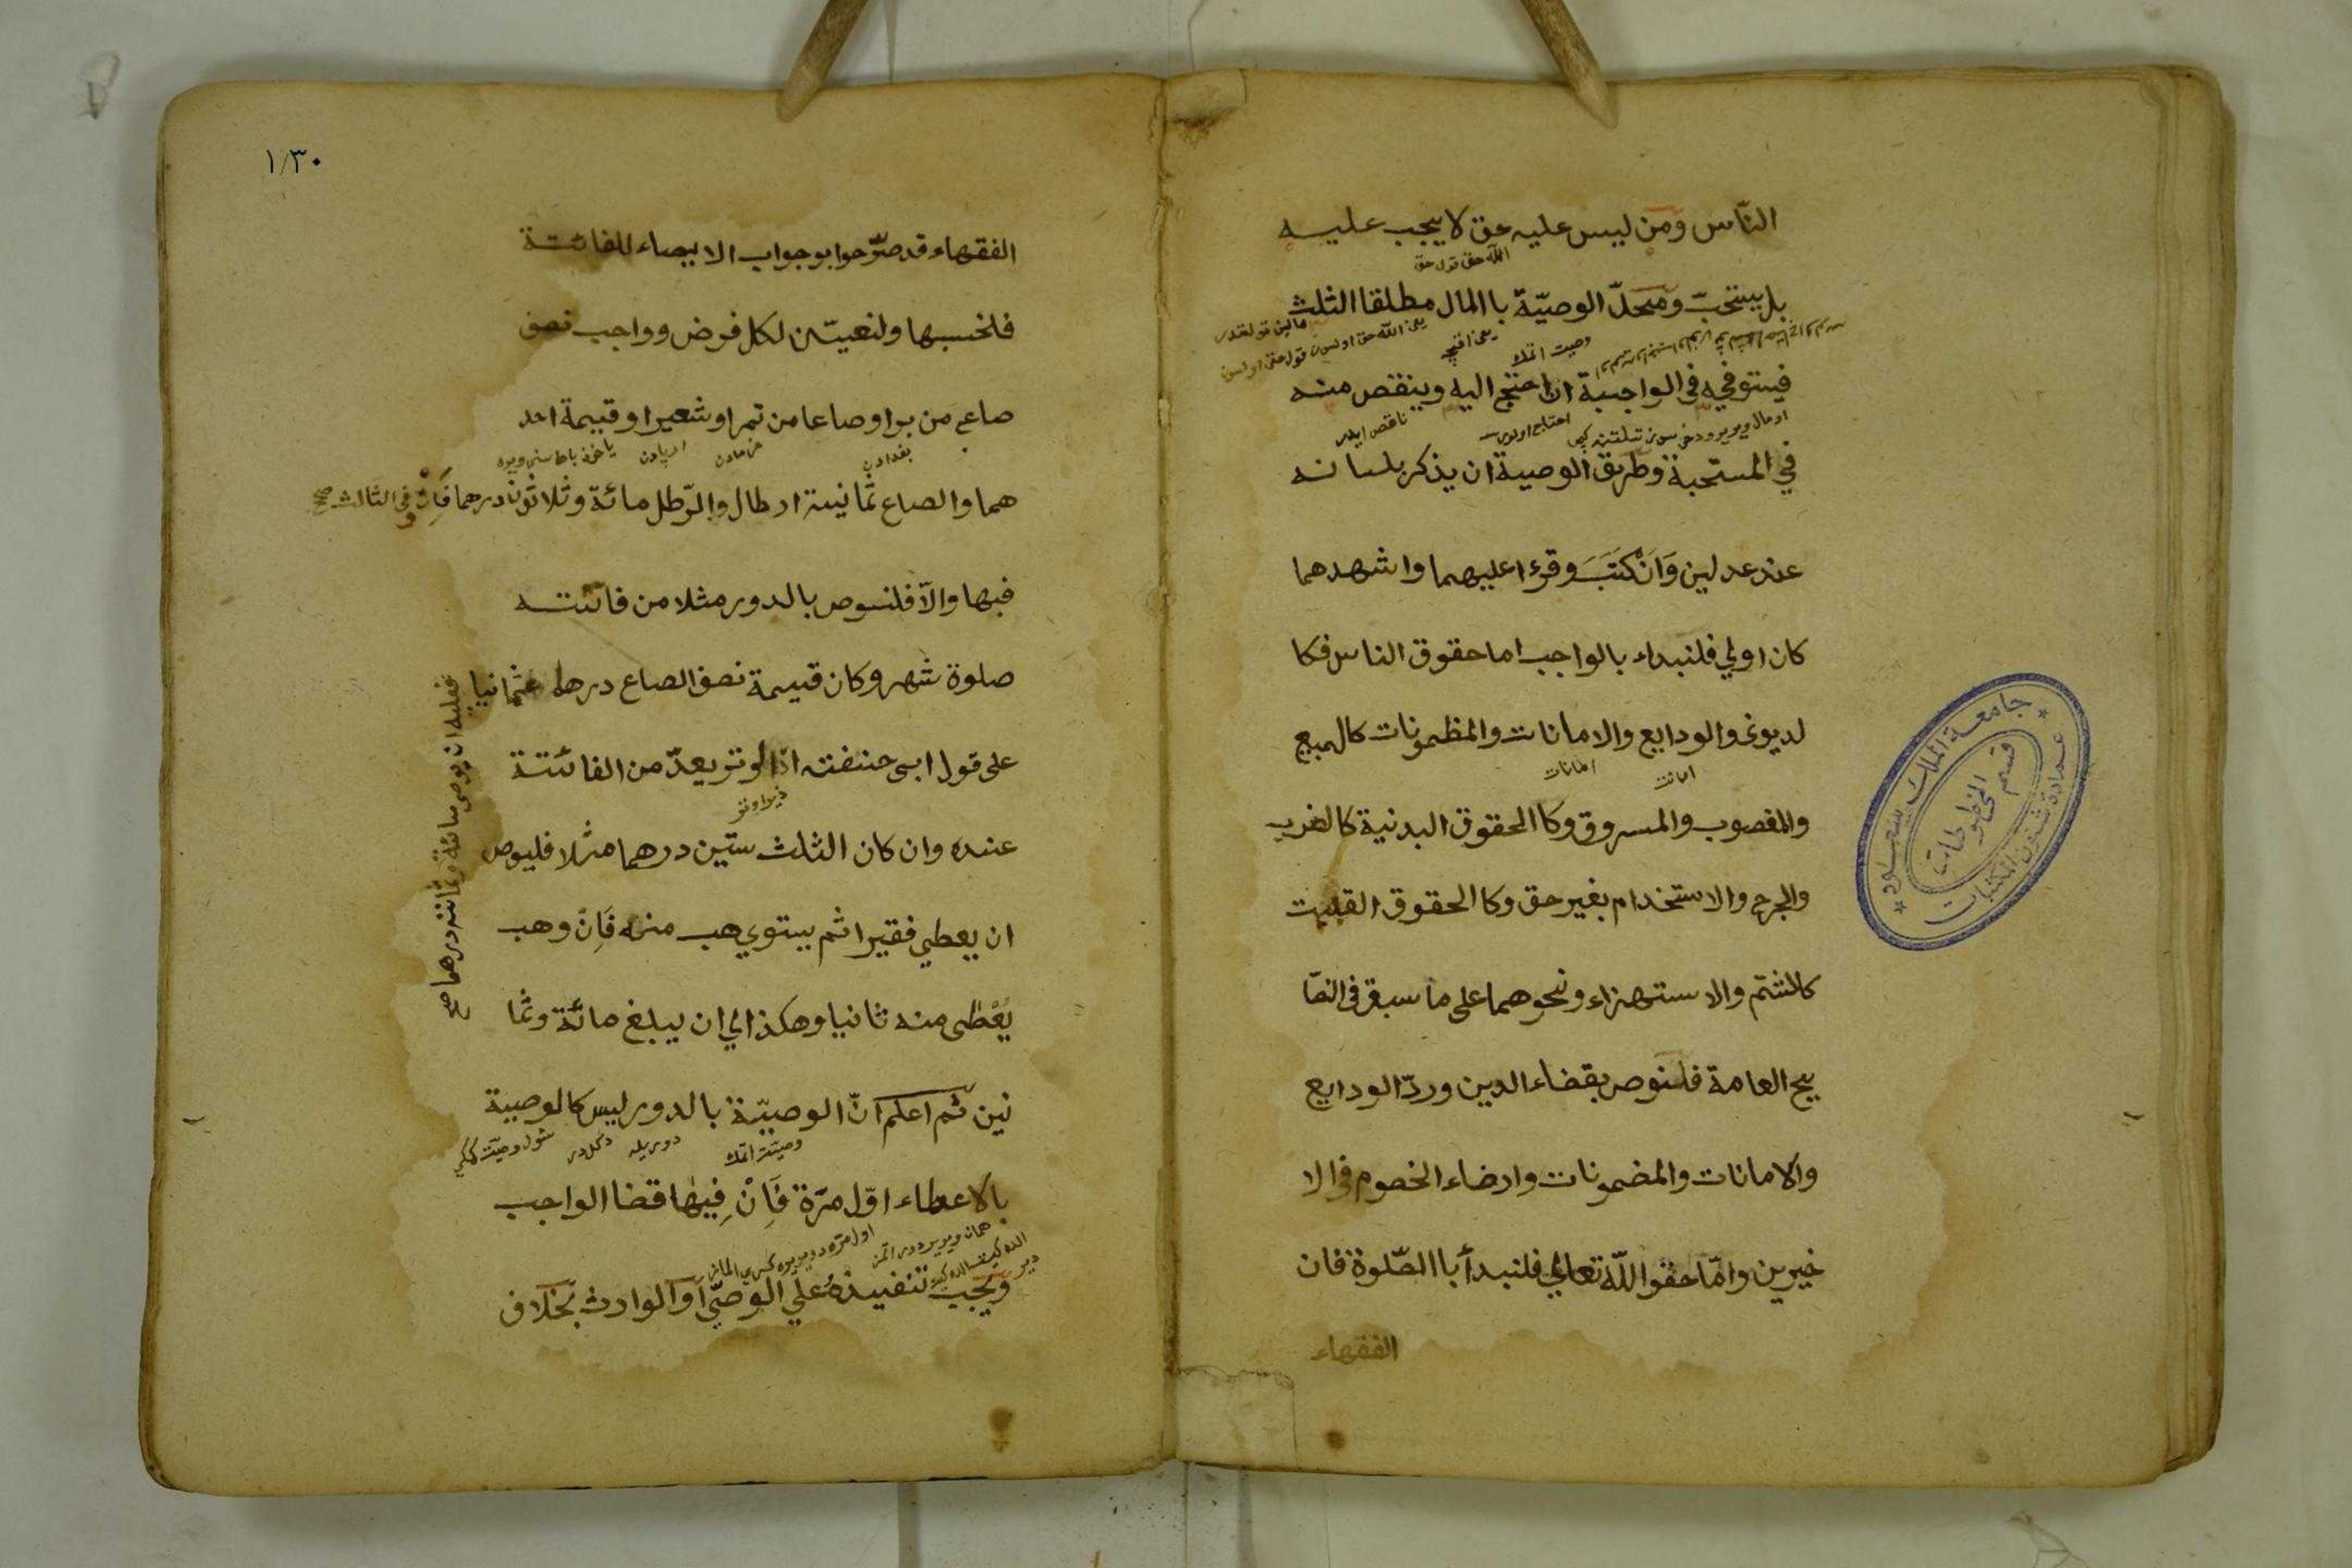 الناس ومن ليس عليه حق لا يجب عليه
بل يستحبّ ومحلّ الوصيّة باالمال مطلقا الثلث
فيستوفيه في الواجبة ان احتج اليه وينقص منه
في المستحبة وطريق الوصية ان يذكر بلسانه
عند عدلين وَاَنْ كَتَبَ وقرءا عليهما واشهدهما
كان اولي فلنبداء بالواجب اما حقوق الناس فكا
لديون والودايع والامانات والمظمونات كالمبيع
والمغصوب والمسروق وكا الحقوق البدنية كالضرب
والجرح والاستخدام بغير حق وكا الحقوق القلبية
كالشتم والاستهزاء ونحوهما على ما سبق في النصا
يح العامة فلنوص بقضاء الدين وردّ الودايع
والامانات والمضمونات وارضاء الخصوم في الا
خيرين وامّا حقوا اللّه تعالي فلنبدأ باا الصّلوة فان
الفقهاء
١/٣٠
الفقهاء قد صرّحوا بوجواب الايصاء للفائتة
فلنحسبها ولنعيّن لكل فرض وواجب نصف
صاع من بر او صاعا من تمر او شعير او قيمة احد
هما والصاع ثمانية ارطال والرّطل مائة وثلاثون درهما فَاِنْ وفي الثالث صح
فبها والّا فلنوص بالدور مثلا من فائتته
صلوة شهر وكان قيمة نصف الصاع درهما عثمانيا
فعليه ان يوصي مائة وثمانين درهما صح
على قول ابى حنيفته اذا لوتر يعدّ من الفائتة
عنده وان كان الثلث ستين درهما مثلا فليوص
ان يعطي فقيرا ثم يستوي هب منه فَاِنْ وهب
يُعْطى منه ثانيا وهكذا الي ان يبلغ مائة وثما
نين ثم اعلم انّ الوصيّة بالدور ليس كالوصية
بالاعطاء اوّل مرّة فَاِنْ فِيهٰا قضا الواجب
ويجب تنفيذهُ علي الوصيّ او الوارث بخلاف
جامعة الملك سعود
عمادة شئون المكتبات
قسم المخطوطات